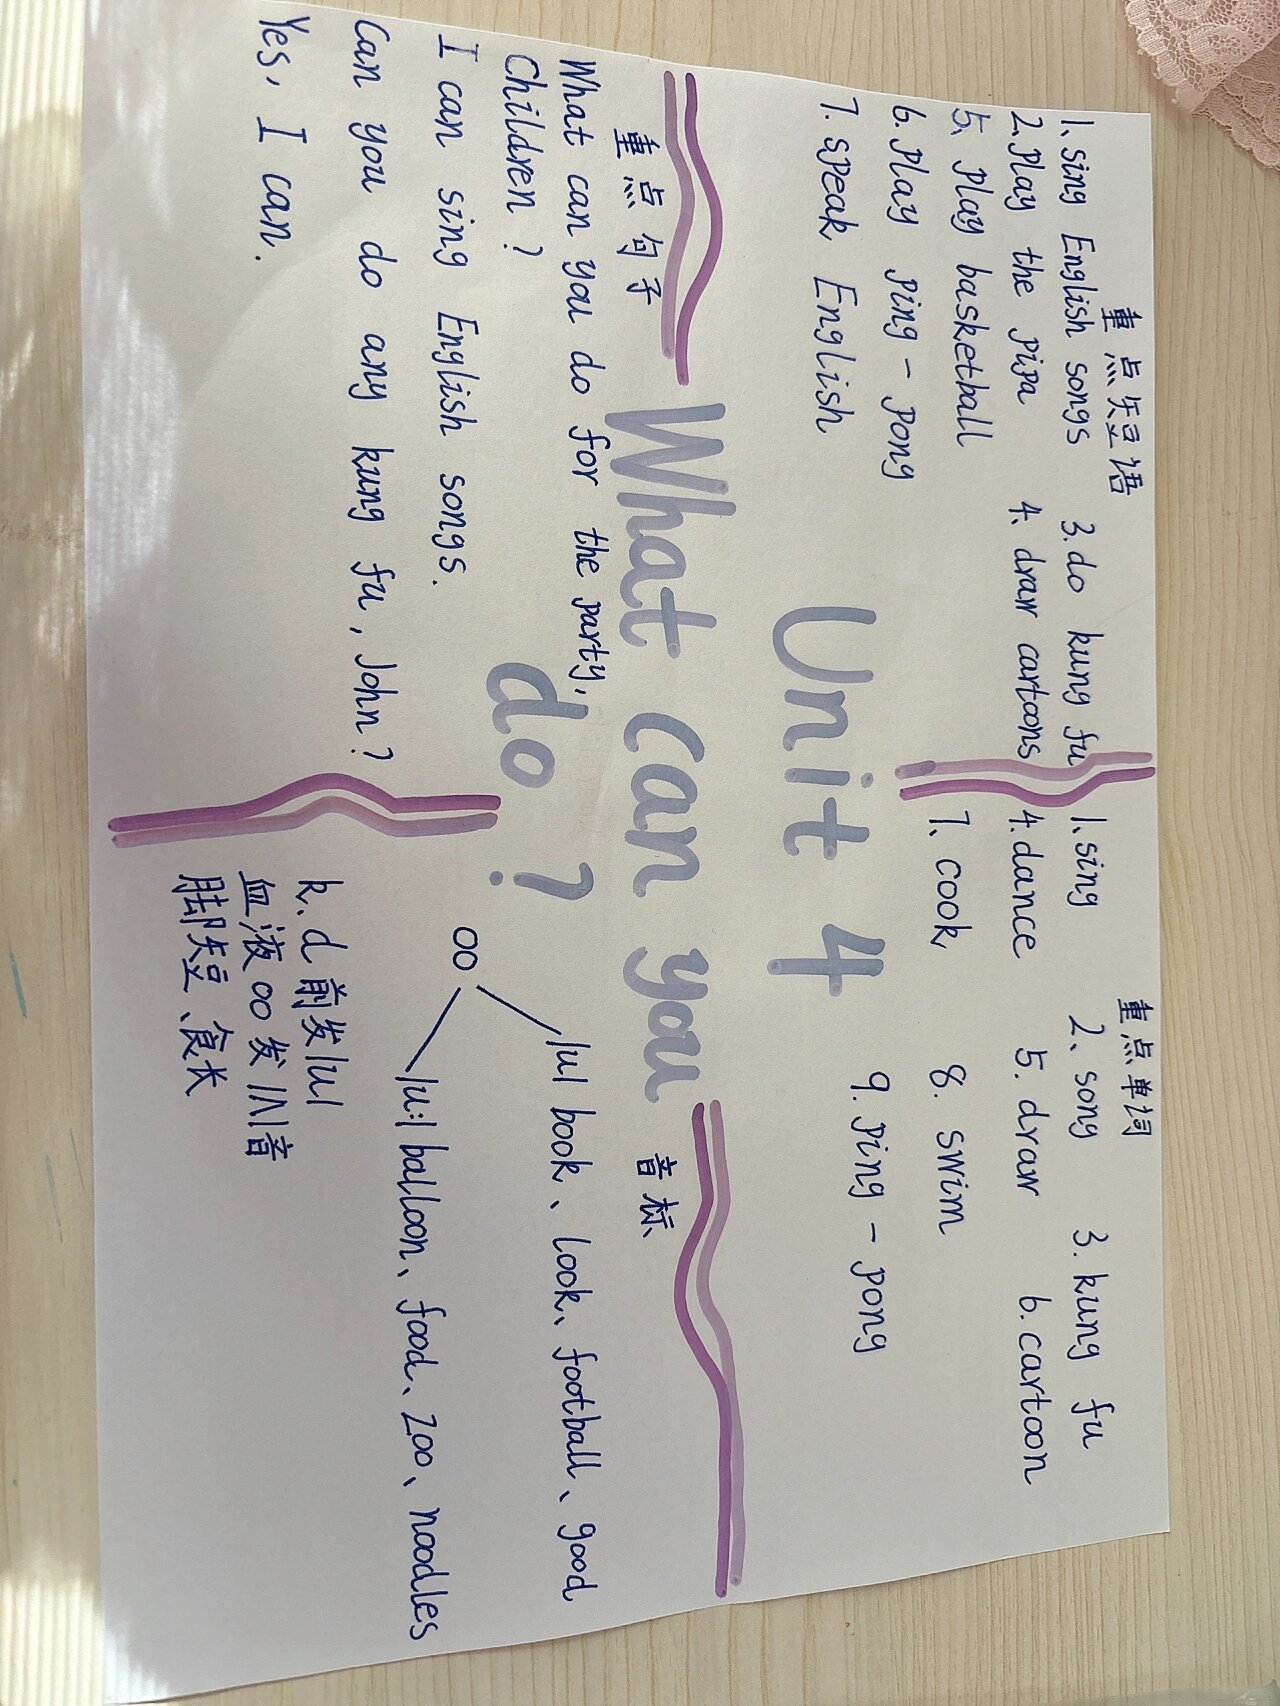 重点短语
1. sing English songs 3. do kung fu
2. Play the pipa 4. draw cartoons
5. Play basketball
6. Play ping-pong
7. speak English
重点单词
1. sing 2、song 3. kung fu
4. dance 5. draw 6. cartoon
7、cook 8. swim
9. ping-pong
Unit 4
What can you
do?
重点句子
What can you do for the party,
Children?
I can sing English songs.
Can you do any kung fu, John?
Yes, I can.
音标
oo
/u/ book、look、football、good
/u:/ balloon、food、zoo、noodles
k.d前发/u/
血液oo发/ʌ/音
脚短、食长